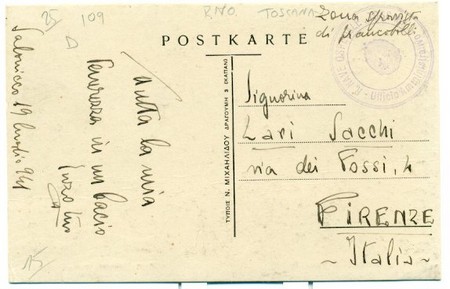 25
D
109
R.NO. TOSCANA
Zona sprovvista
di francobolli
POSTKARTE
Salonicco 19 luglio 941
Tutta la mia
tenerezza in un bacio
Enzo tuo
ΤΥΠΟΙΣ Ν. ΜΙΧΑΗΛΙΔΟΥ ΔΡΑΓΟΥΜΗ 3
Signorina
Lari Sacchi
via dei Fossi, 4
FIRENZE
~ Italia ~
15